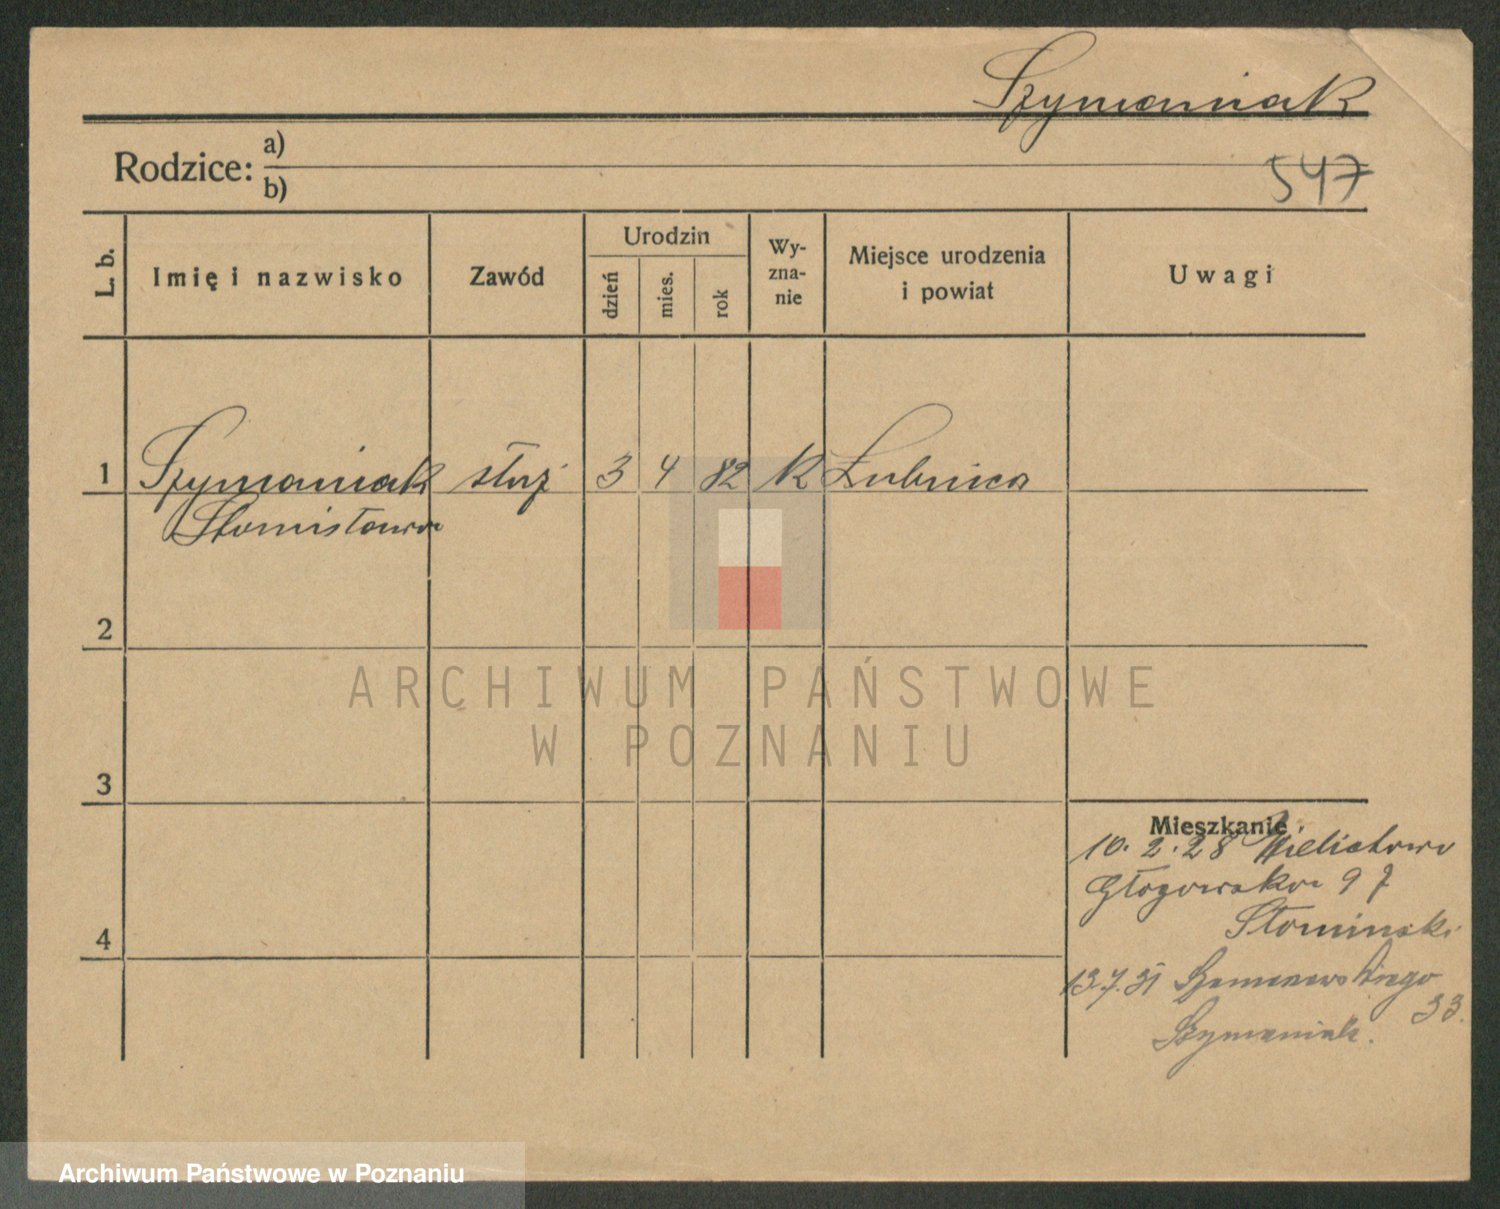 Szymaniak
547
Rodzice: a)
b)
L. b.
Imię i nazwisko
Zawód
Urodzin
dzień
mies.
rok
Wy-
zna-
nie
Miejsce urodzenia
i powiat
Uwagi
1 Szymaniak służ 3 4 82 K Łubnica
Stanisława
2
3
4
Mieszkanie
10. 2. 28
Głogowska 97
Słomiński
13.7.31
33.
Szymaniak.
ARCHIWUM PAŃSTWOWE
W POZNANIU
Archiwum Państwowe w Poznaniu